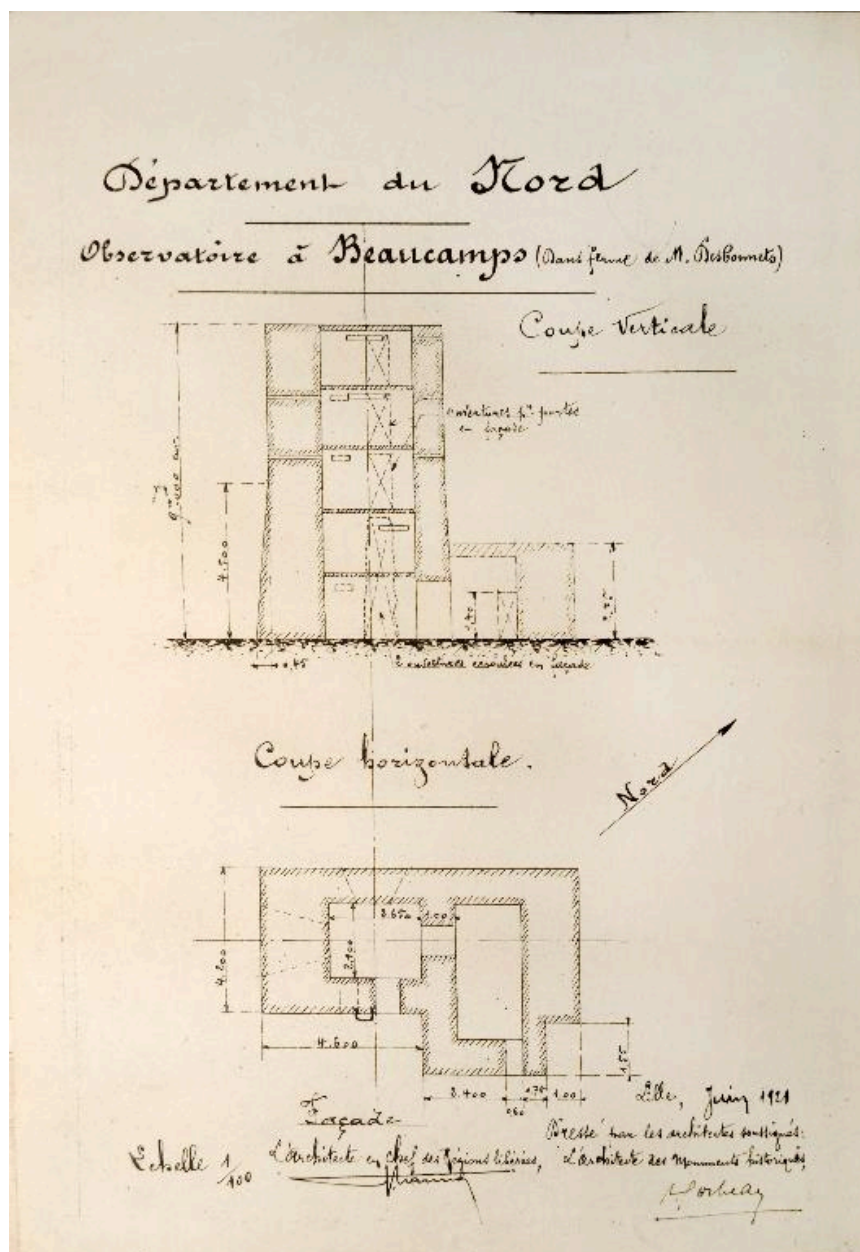 Département du Nord
Observatoire à Beaucamps (Dans ferme de M. Desbonnets)
Coupe Verticale
ouvertures pr. portes
en façade
4.500
1.40
2.75
0.45
en façade
Coupe horizontale.
Nord
2.650
1.00
2.100
4.200
4.600
1.55
2.400
0.60
0.70
1.00
Façade
Lille, Juin 1921
Dressé par les architectes soussignés:
Echelle 1/100
L'architecte en chef des Régions libérées,
L'architecte des Monuments historiques,